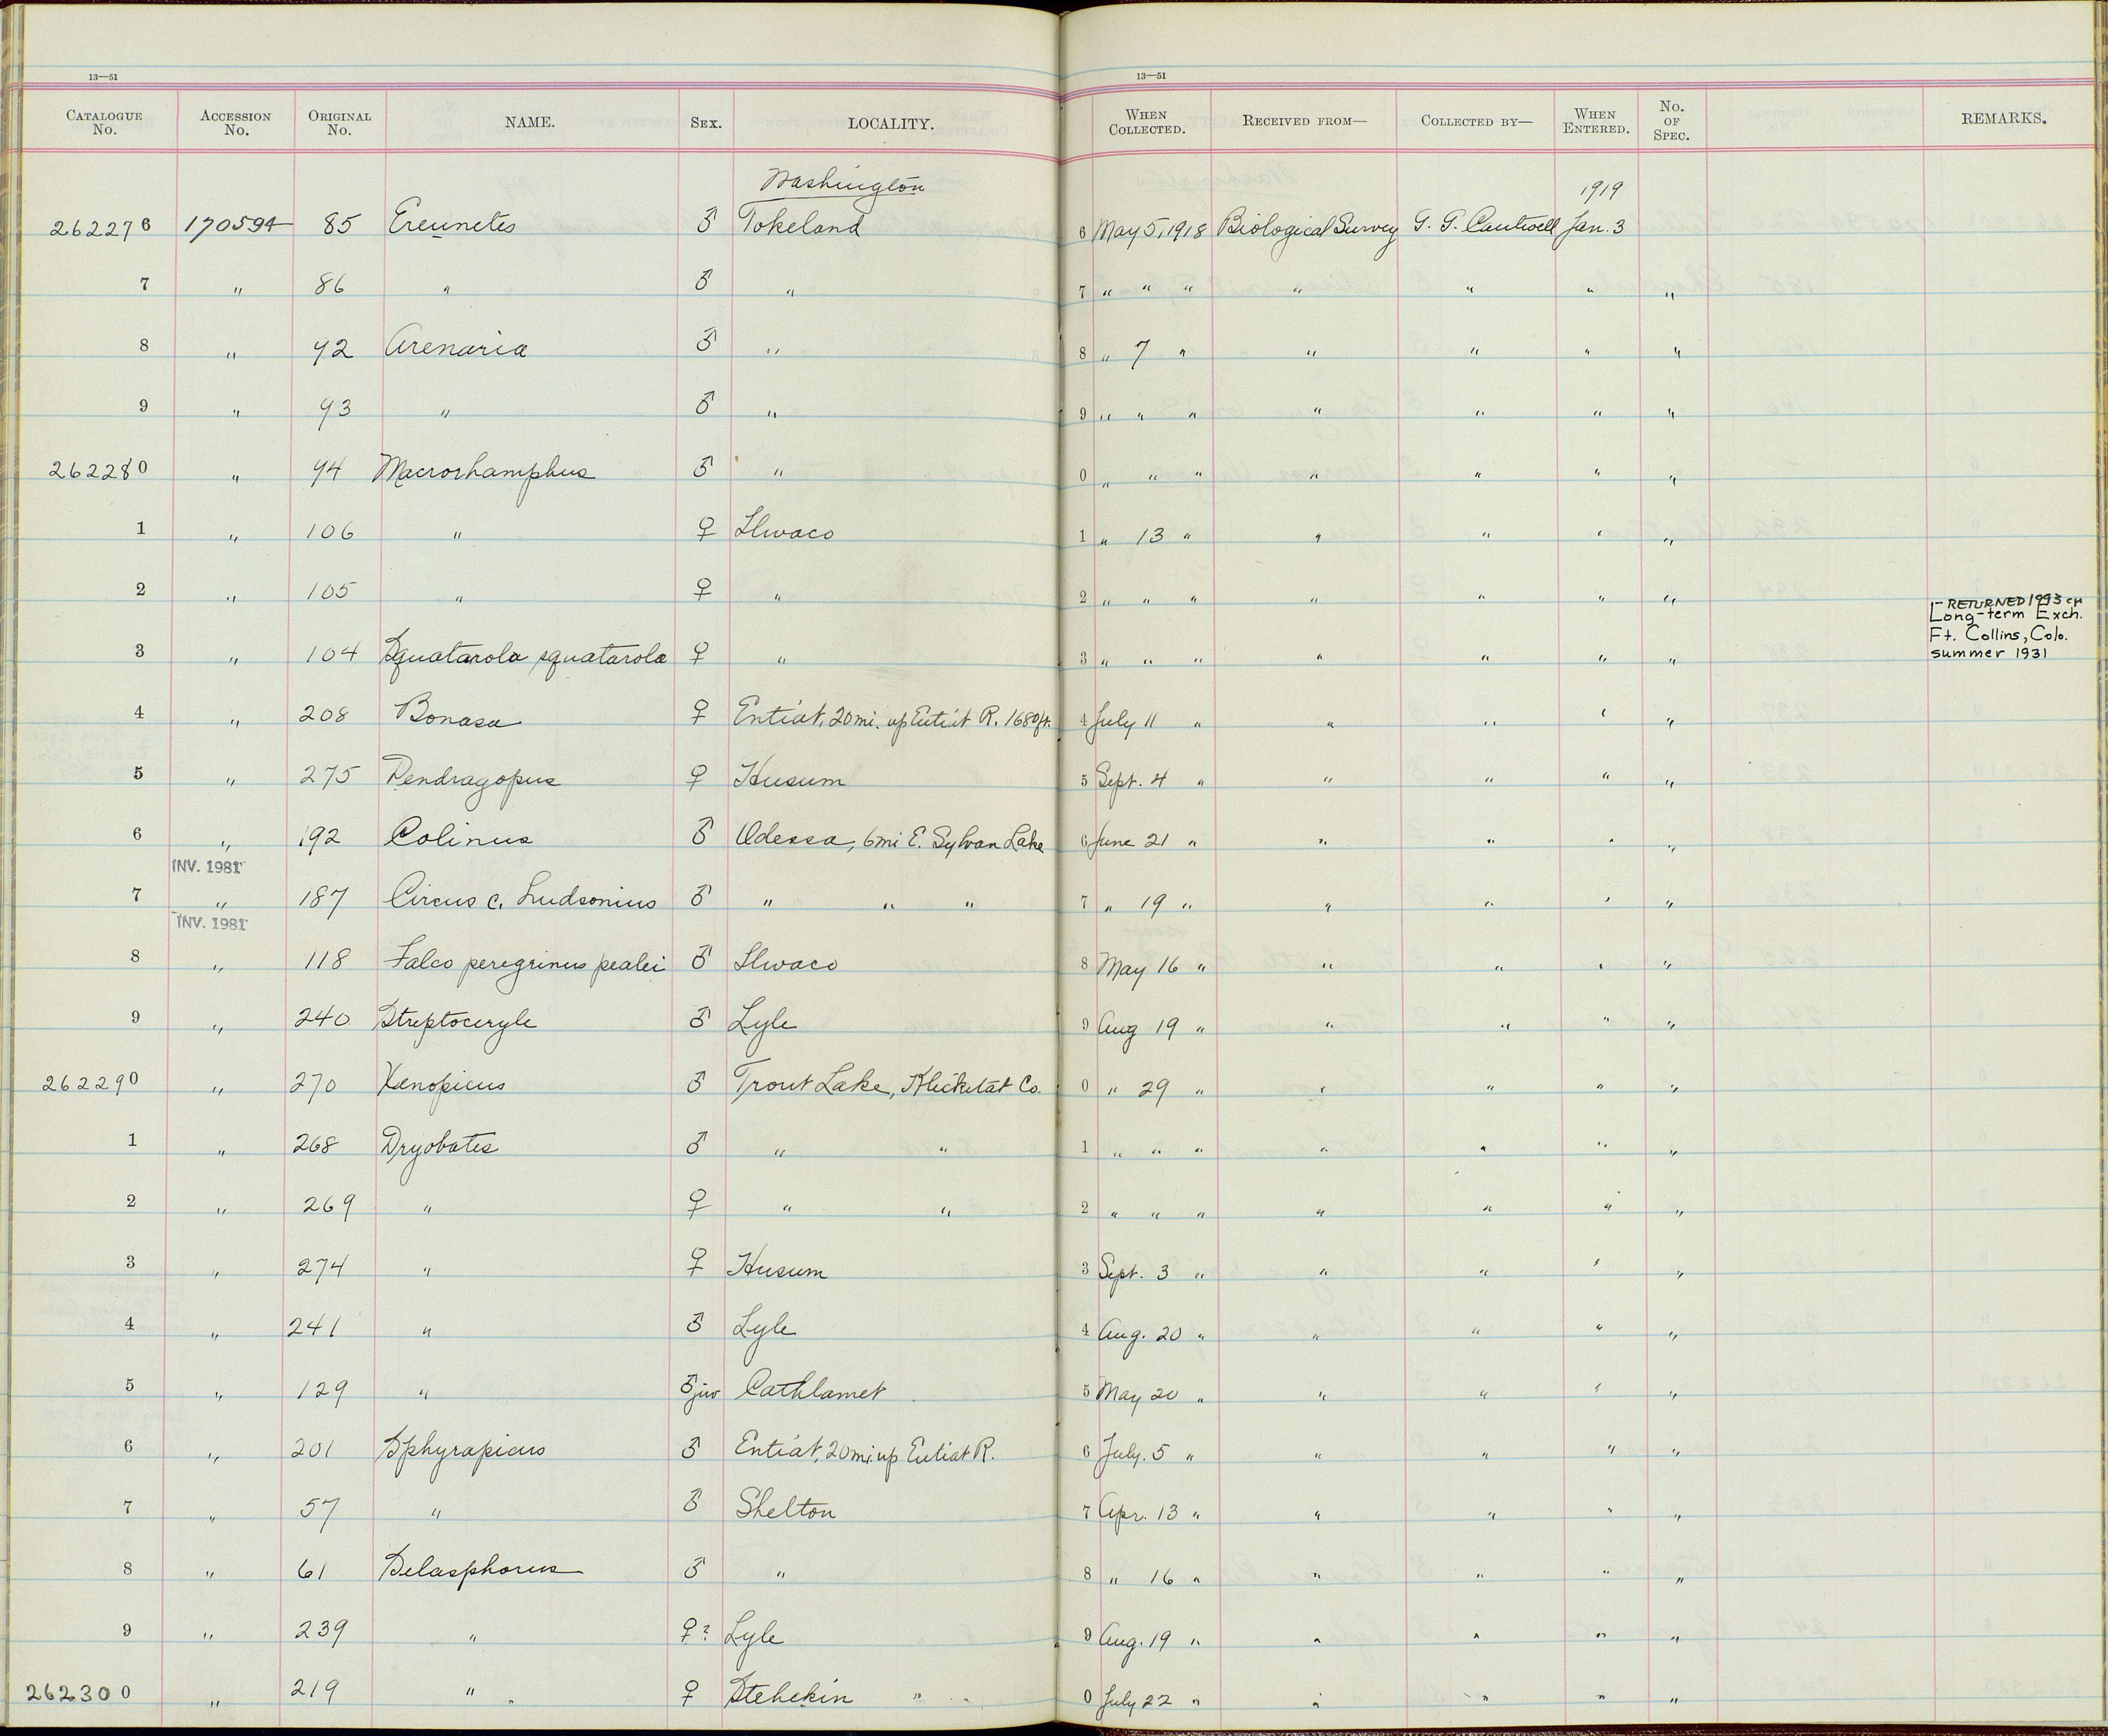 13—51 13—51
CATALOGUE No. ACCESSION No. ORIGINAL No. NAME. SEX. LOCALITY. WHEN COLLECTED. RECEIVED FROM— COLLECTED BY— WHEN ENTERED. No. OF SPEC. REMARKS.
Washington 1919
262276 170594 85 Ereunetes ♂ Tokeland 6 May 5, 1918 Biological Survey G. G. Cantwell Jan. 3
7 " 86 " ♂ " 7 " " " " " " "
8 " 92 Arenaria ♂ " 8 " 7 " " " " "
9 " 93 " ♂ " 9 " " " " " " "
262280 " 94 Macrorhamphus ♂ " 0 " " " " " " "
1 " 106 " ♀ Ilwaco 1 " 13 " " " " "
2 " 105 " ♀ " 2 " " " " " " "
RETURNED 1993
Long-term Exch.
Ft. Collins, Colo.
3 " 104 Squatarola squatarola ♀ " 3 " " " " " " " summer 1931
4 " 208 Bonasa ♀ Entiat, 20 mi. up Entiat R. 1680 ft. 4 July 11 " " " " "
5 " 275 Dendragopus ♀ Husum 5 Sept. 4 " " " " "
6 " 192 Colinus ♂ Odessa, 6 mi E. Sylvan Lake 6 June 21 " " " " "
INV. 1981
7 " 187 Circus c. hudsonius ♂ " " " 7 " 19 " " " " "
INV. 1981
8 " 118 Falco peregrinus pealei ♂ Ilwaco 8 May 16 " " " " "
9 " 240 Streptoceryle ♂ Lyle 9 Aug 19 " " " " "
262290 " 270 Xenopicus ♂ Trout Lake, Klickitat Co. 0 " 29 " " " " "
1 " 268 Dryobates ♂ " " 1 " " " " " " "
2 " 269 " ♀ " " 2 " " " " " " "
3 " 274 " ♀ Husum 3 Sept. 3 " " " " "
4 " 241 " ♂ Lyle 4 Aug. 20 " " " " "
5 " 129 " ♂ juv Cathlamet 5 May 20 " " " " "
6 " 201 Sphyrapicus ♂ Entiat, 20 mi. up Entiat R. 6 July. 5 " " " " "
7 " 57 " ♂ Shelton 7 Apr. 13 " " " " "
8 " 61 Selasphorus ♂ " 8 " 16 " " " " "
9 " 239 " ♀? Lyle 9 Aug. 19 " " " " "
262300 " 219 " ♀ Stehekin " " 0 July 22 " " " " "